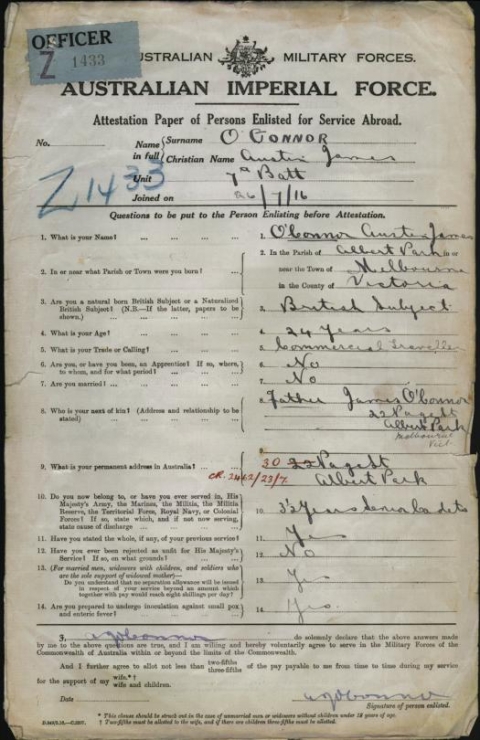 OFFICER
Z 1433
AUSTRALIAN MILITARY FORCES.
AUSTRALIAN IMPERIAL FORCE.
Attestation Paper of Persons Enlisted for Service Abroad.
No. Name in full Surname O'Connor
Christian Name Austin James
Z1433
Unit 7th Batt
Joined on 26/7/16
Questions to be put to the Person Enlisting before Attestation.
1. What is your Name? ... ... ... 1. O'Connor Austin James
2. In or near what Parish or Town were you born? ... 2. In the Parish of Albert Park in or
near the Town of Melbourne
in the County of Victoria
3. Are you a natural born British Subject or a Naturalized
British Subject? (N.B.—If the latter, papers to be
shown.) 3. British Subject
4. What is your Age? 4. 24 Years
5. What is your Trade or Calling? 5. Commercial Traveller
6. Are you, or have you been, an Apprentice? If so, where,
to whom, and for what period? 6. No
7. Are you married? 7. No
8. Who is your next of kin? (Address and relationship to be
stated) 8. Father James O'Connor
22 Page St
Albert Park
Melbourne
Vict.
9. What is your permanent address in Australia? 9. 30 22 Page St
Albert Park
10. Do you now belong to, or have you ever served in, His
Majesty's Army, the Marines, the Militia, the Militia
Reserve, the Territorial Force, Royal Navy, or Colonial
Forces? If so, state which, and if not now serving,
state cause of discharge 10. 3½ Years Senior Cadets
11. Have you stated the whole, if any, of your previous service? 11. Yes
12. Have you ever been rejected as unfit for His Majesty's
Service? If so, on what grounds? 12. No
13. (For married men, widowers with children, and soldiers who
are the sole support of widowed mother)—
Do you understand that no separation allowance will be issued
in respect of your service beyond an amount which
together with pay would reach eight shillings per day? 13. Yes
14. Are you prepared to undergo inoculation against small pox
and enteric fever? 14. Yes.
I, AJO'Connor do solemnly declare that the above answers made
by me to the above questions are true, and I am willing and hereby voluntarily agree to serve in the Military Forces of the
Commonwealth of Australia within or beyond the limits of the Commonwealth.
And I further agree to allot not less than two-fifths three-fifths of the pay payable to me from time to time during my service
for the support of my wife.*†
wife and children.
Date AJO'Connor
Signature of person enlisted.
* This clause should be struck out in the case of unmarried men or widowers without children under 18 years of age.
† Two-fifths must be allotted to the wife, and if there are children three-fifths must be allotted.